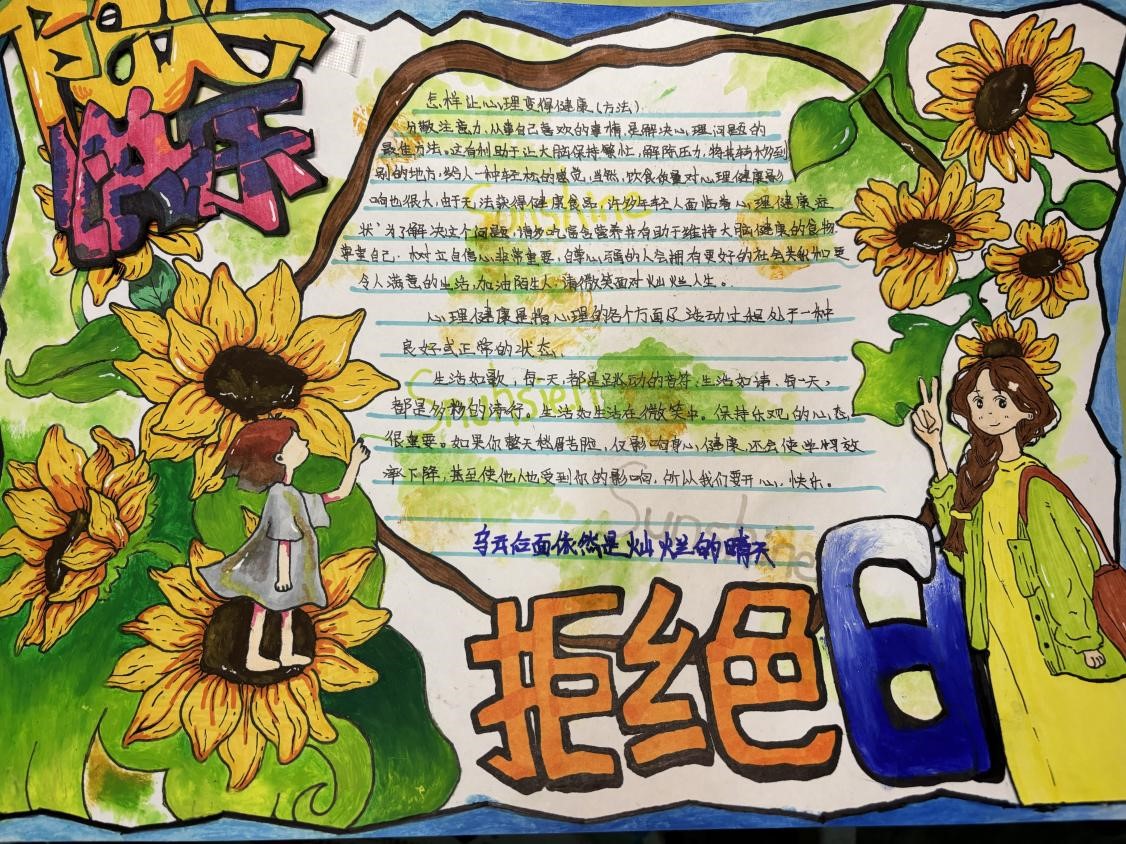 自己
悦乐
怎样让心理变得健康(方法)
分散注意力,从事自己喜欢的事情,是解决心理问题的
最佳方法。这有利助于让大脑保持繁忙,解除压力,将其转移到
别的地方,给人一种轻松的感觉,当然,饮食质量对心理健康影
响也很大,由于无法获得健康食品,许多年轻人面临着心理健康症
状,为了解决这个问题,请多吃富含营养并有助于维持大脑健康的食物
尊重自己,树立自信心非常重要,自尊心强的人会拥有更好的社会关系和更
令人满意的生活,加油陌生人,请微笑面对灿烂人生。
心理健康是指心理的各个方面及活动过程处于一种
良好或正常的状态.
生活如歌,每一天,都是跳动的音符,生活如诗,每一天,
都是的诗行。生活如生活在微笑中。保持乐观的心态,
很重要。如果你整天愁眉苦脸,仅影响身心健康,还会使学习效
率下降,甚至使他人也受到你的影响,所以我们要开心,快乐。
Sunshine
Sunshine
乌云后面依然是灿烂的晴天
拒绝